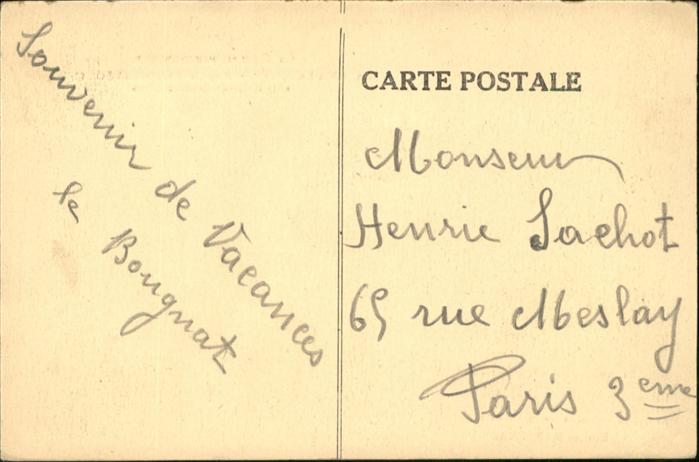 Souvenir de Vacances
le Bougnat
CARTE POSTALE
Monseur
Henrie Lachot
65 rue Meslay
Paris 3eme